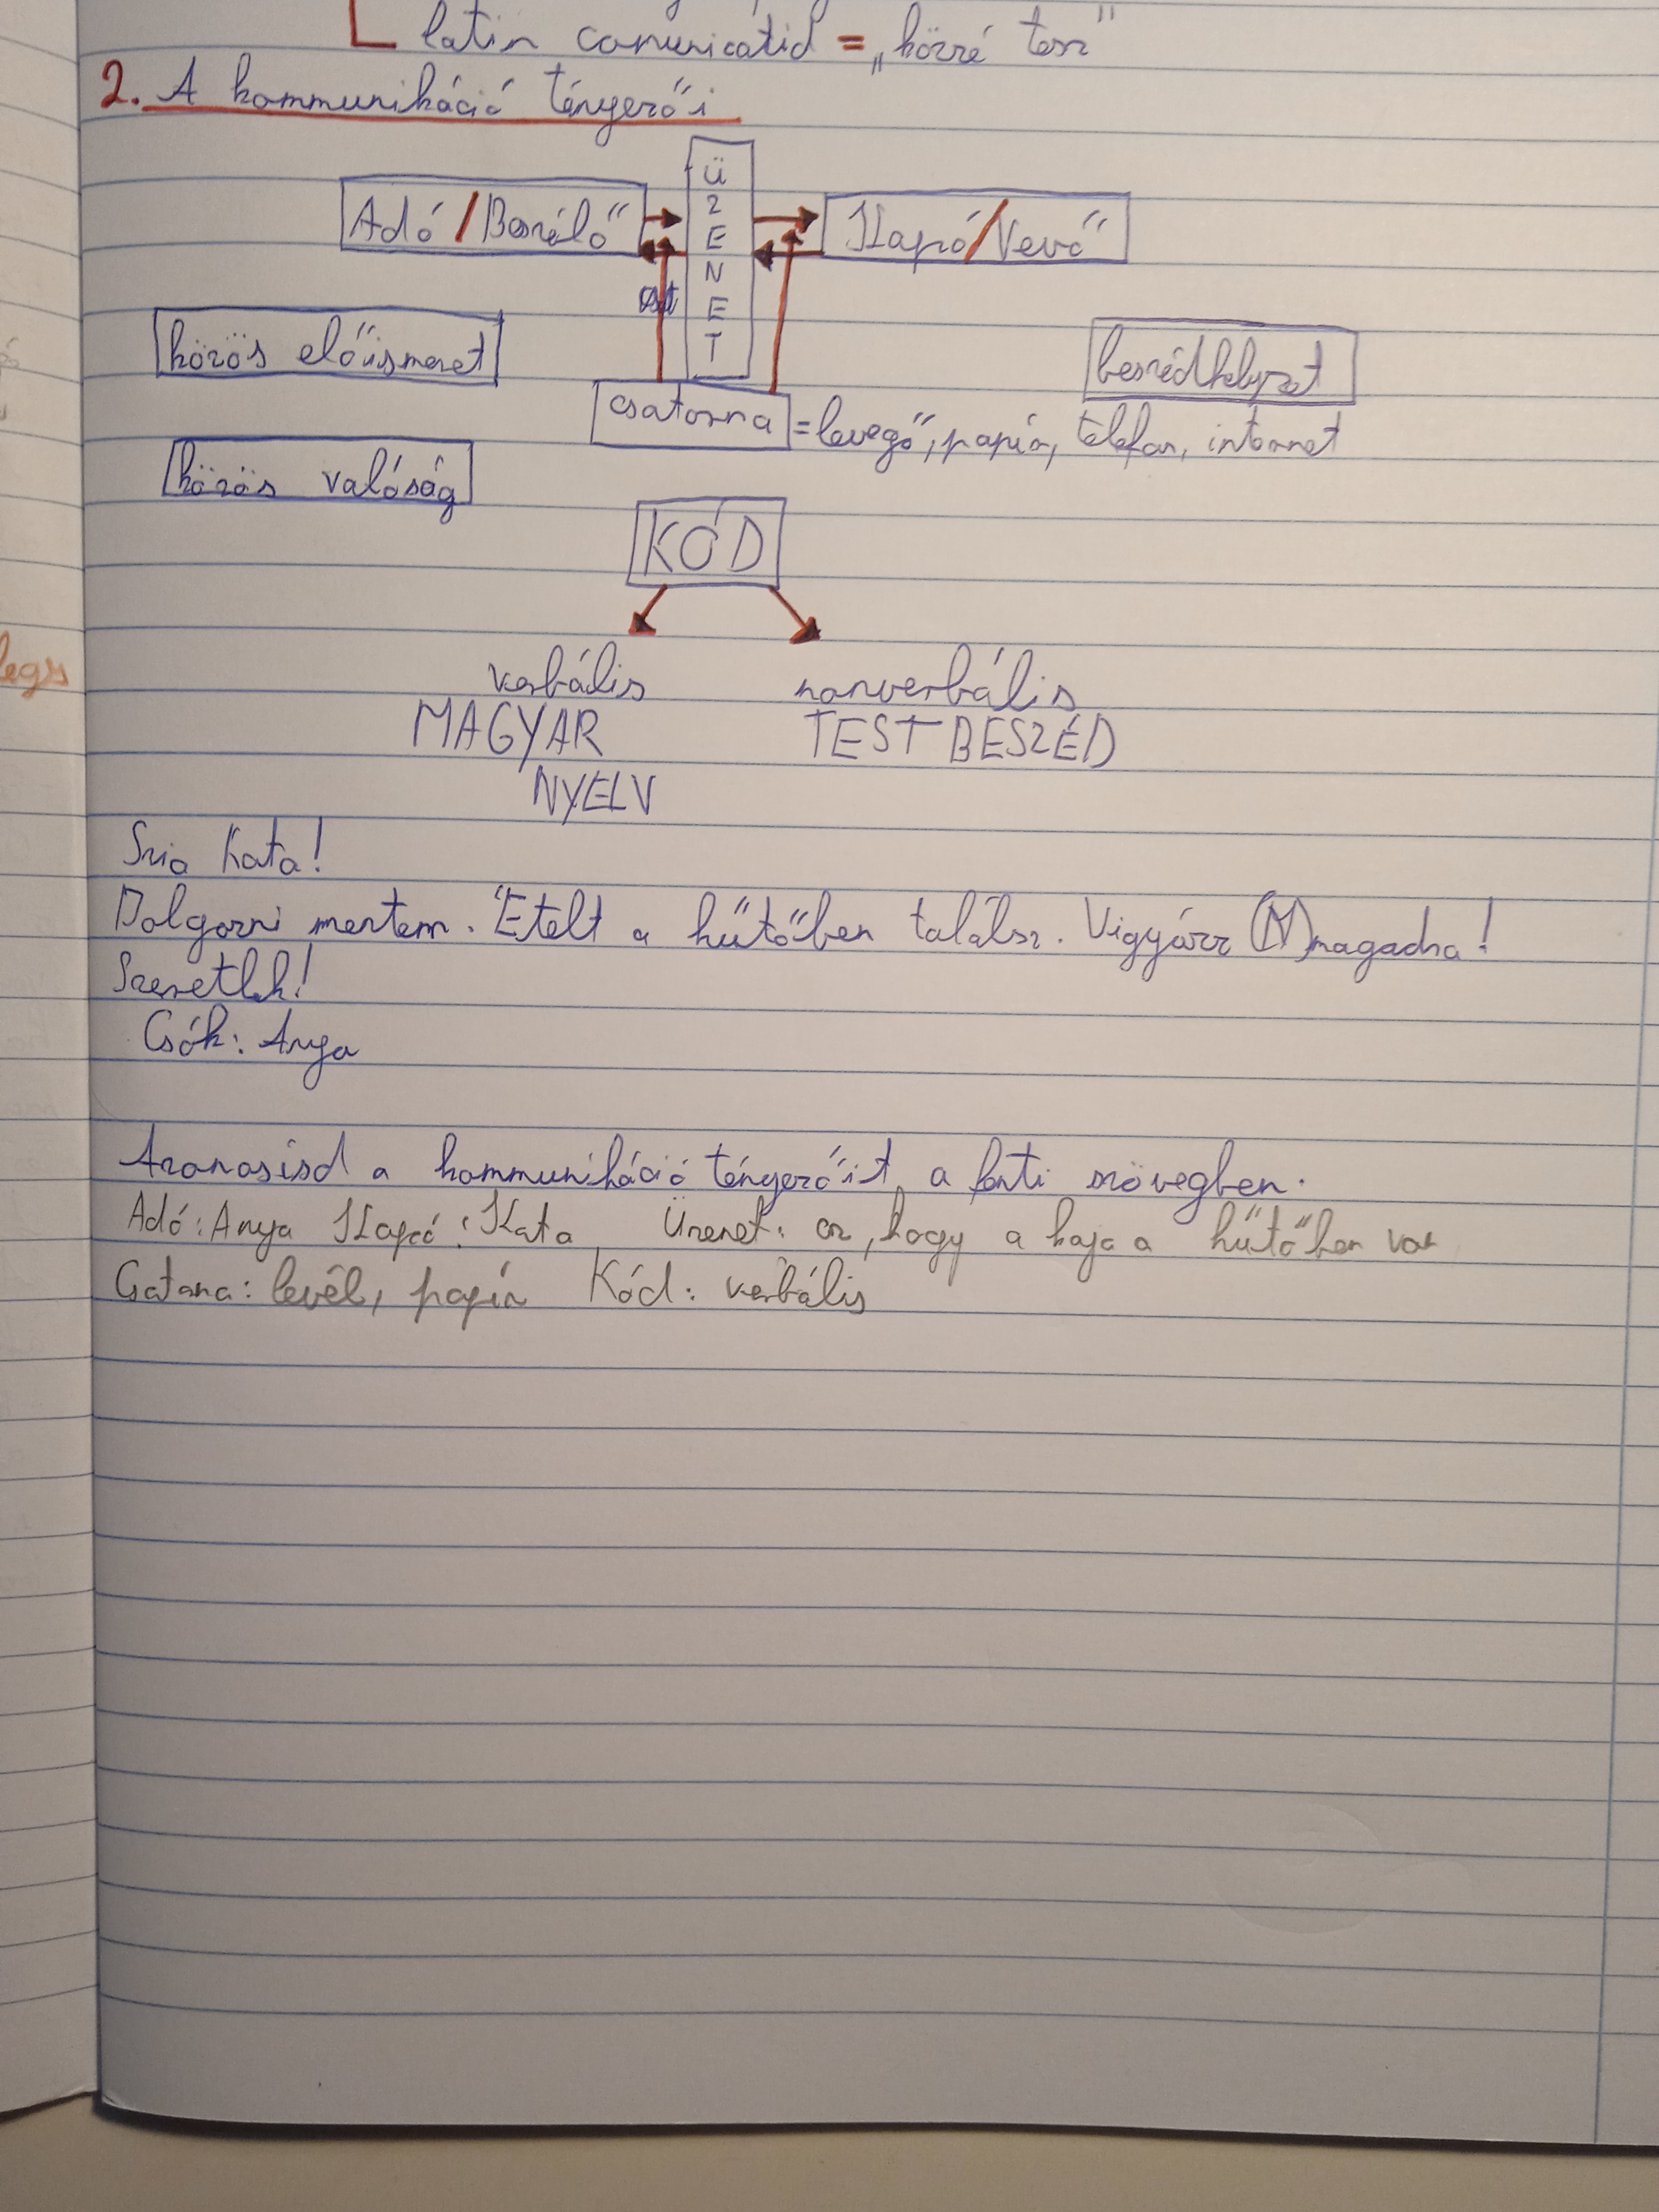 latin comunicatió = „közzé tesz"
2. A kommunikáció tényezői
Adó/Beszélő
ÜZENET
Kapó/Vevő
közös előismeret
beszédhelyzet
csatorna = levegő, papír, telefon, internet
közös valóság
KÓD
verbális nonverbális
MAGYAR TESTBESZÉD
NYELV
Szia Kata!
Dolgozni mentem. Ételt a hűtőben találsz. Vigyázz (M)magadra!
Szeretlek!
Csók: Anya
Azonosísd a kommunikáció tényezőit a fenti szövegben.
Adó: Anya Kapó: Kata Üzenet: az, hogy a kaja a hűtőben van
Csatorna: levél, papír Kód: verbális